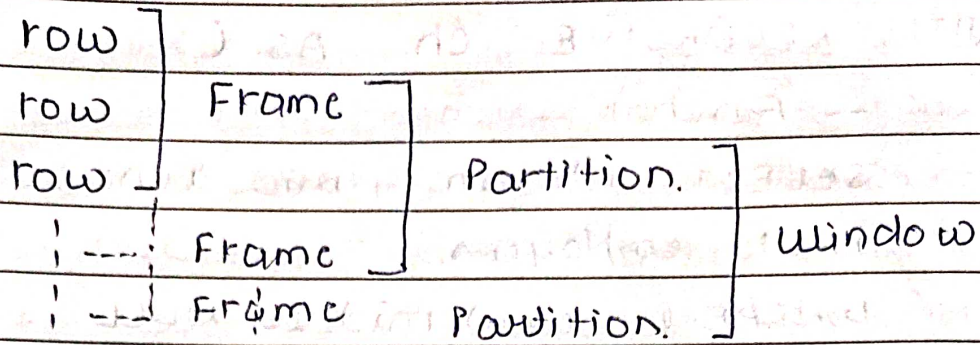 row
row Frame
row Partition.
Frame window
Frame Partition.